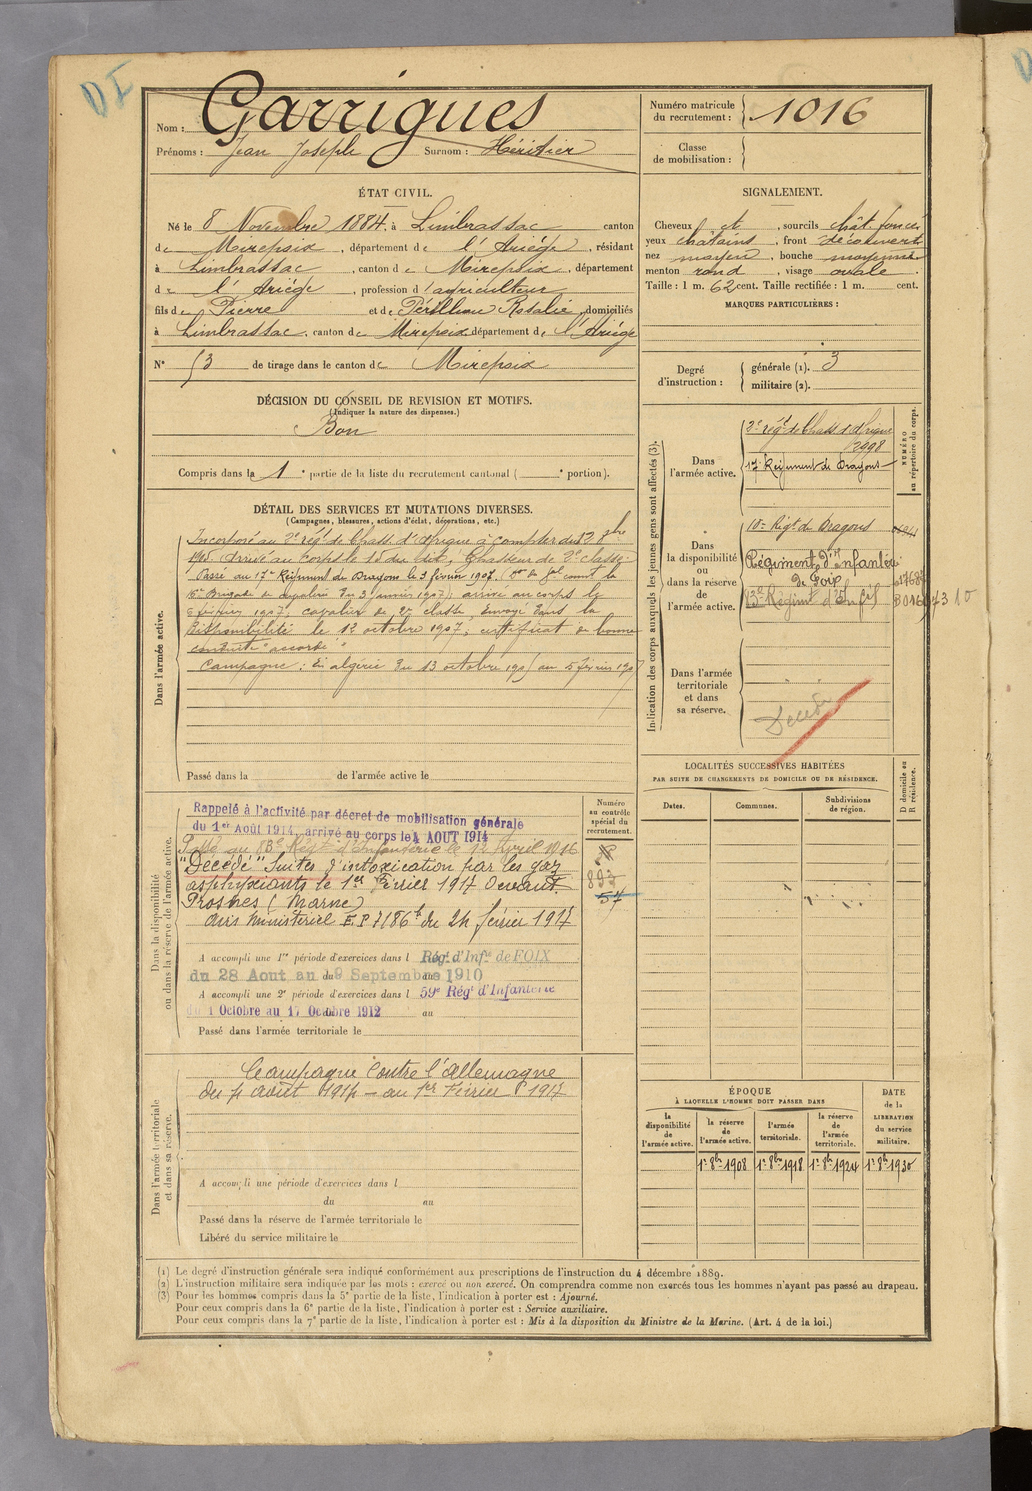 DI
Nom : Garrigues
Prénoms : Jean Joseph Surnom : Héritier
Numéro matricule
du recrutement : 1016
Classe
de mobilisation :
ÉTAT CIVIL.
Né le 8 Novembre 1884, à Limbrassac canton
de Mirepoix, département de l'Ariége, résidant
à Limbrassac, canton de Mirepoix, département
de l'Ariége, profession d'agriculteur
fils de Pierre et de Rosalie, domiciliés
à Limbrassac, canton de Mirepoix, département de l'Ariége
N° 53 de tirage dans le canton de Mirepoix
SIGNALEMENT.
Cheveux et, sourcils chât. foncé
yeux châtains, front découvert
nez moyen, bouche moyenne
menton rond, visage ovale
Taille : 1 m. 62 cent. Taille rectifiée : 1 m. cent.
MARQUES PARTICULIÈRES :
Degré
d'instruction :
générale (1). 3
militaire (2).
DÉCISION DU CONSEIL DE REVISION ET MOTIFS.
(Indiquer la nature des dispenses.)
Bon
Compris dans la 1e partie de la liste du recrutement cantonal ( e portion).
DÉTAIL DES SERVICES ET MUTATIONS DIVERSES.
(Campagnes, blessures, actions d'éclat, décorations, etc.)
Dans l'armée active.
Incorporé au 2e rég. de Chass. d'Afrique à compter du 12 8bre
1905 arrivé au corps le 15 du dit, Chasseur de 2e classe
Passé au 17me Régiment de Dragons le 3 février 1907.
6e Brigade de cavalerie du 3 janvier 1907; arrivé au corps le
6 février 1907; cavalier de 2e classe. Envoyé dans la
disponibilité le 12 octobre 1907; certificat de bonne
conduite "accordé"
Campagne : En algérie du 13 octobre 1905 au 5 février 1907
Passé dans la de l'armée active le
Indication des corps auxquels les jeunes gens sont affectés (3).
NUMÉRO
au répertoire du corps.
Dans
l'armée active.
2e rég. de Chass. d'Afrique
2998
17e Régiment de Dragons
Dans
la disponibilité
ou
dans la réserve
de
l'armée active.
10e Régt de Dragons
Régiment d'Infanterie
de Foix
83e Régiment d'Inf.
Dans l'armée
territoriale
et dans
sa réserve.
Décédé
LOCALITÉS SUCCESSIVES HABITÉES
PAR SUITE DE CHANGEMENTS DE DOMICILE OU DE RÉSIDENCE.
Dates. Communes. Subdivisions
de région.
D domicile ou
R résidence.
Dans la disponibilité
ou dans la réserve de l'armée active.
Numéro
au contrôle
spécial du
recrutement.
893
57
Rappelé à l'activité par décret de mobilisation générale
du 1er Août 1914, arrivé au corps le 4 AOUT 1914
Passé au 83e Régt d'Infanterie le 1er Avril 1916
"Décédé" Suites d'intoxication par les gaz
asphyxiants le 1er Février 1917 devant
Prosnes (Marne)
Avis Ministériel E.P 7186 du 24 février 1917
A accompli une 1re période d'exercices dans l Rég. d'Infie de FOIX
du 28 Aout au 9 Septembre 1910
A accompli une 2e période d'exercices dans l 59e Régt d'Infanterie
du 1 Octobre au 17 Octobre 1912 au
Passé dans l'armée territoriale le
Dans l'armée territoriale
et dans sa réserve.
Campagne contre l'Allemagne
du 4 août 1914 – au 1er Février 1917
A accompli une période d'exercices dans l
du au
Passé dans la réserve de l'armée territoriale le
Libéré du service militaire le
ÉPOQUE
À LAQUELLE L'HOMME DOIT PASSER DANS
la
disponibilité
de
l'armée active.
la réserve
de
l'armée active.
l'armée
territoriale.
la réserve
de
l'armée
territoriale.
DATE
de la
LIBÉRATION
du service
militaire.
1er 8bre 1908 1er 8bre 1918 1er 8bre 1924 1er 8bre 1930
(1) Le degré d'instruction générale sera indiqué conformément aux prescriptions de l'instruction du 4 décembre 1889.
(2) L'instruction militaire sera indiquée par les mots : exercé ou non exercé. On comprendra comme non exercés tous les hommes n'ayant pas passé au drapeau.
(3) Pour les hommes compris dans la 5e partie de la liste, l'indication à porter est : Ajourné.
Pour ceux compris dans la 6e partie de la liste, l'indication à porter est : Service auxiliaire.
Pour ceux compris dans la 7e partie de la liste, l'indication à porter est : Mis à la disposition du Ministre de la Marine. (Art. 4 de la loi.)